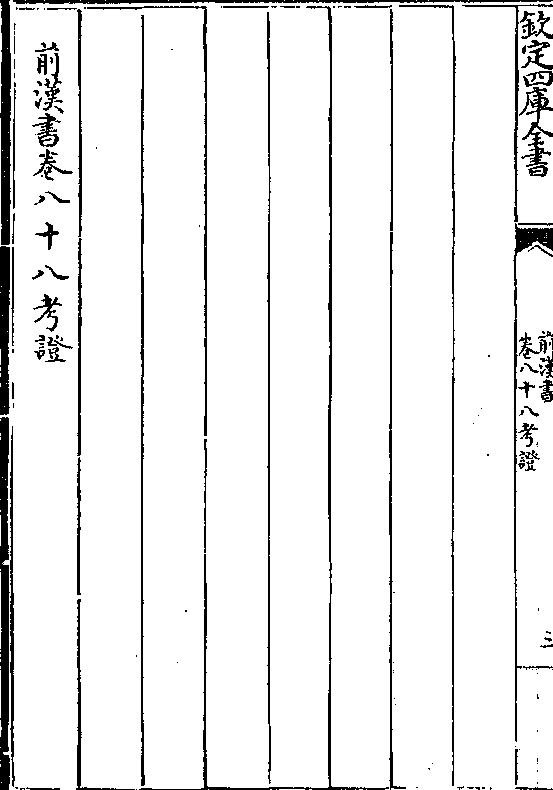 欽定四庫全書
前漢書
卷八十八考證
三
前漢書卷八十八考證